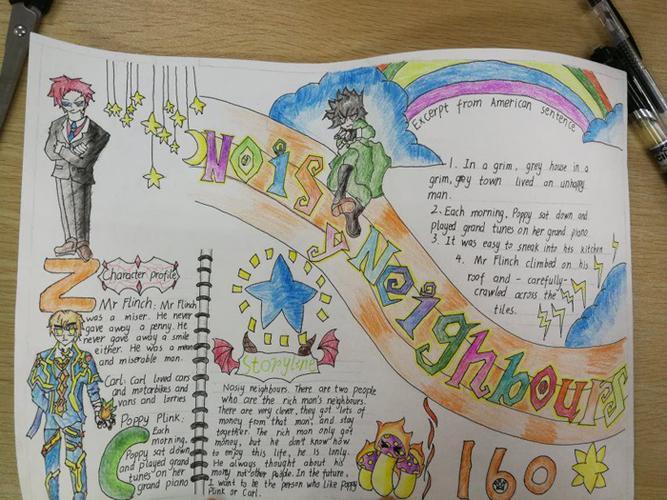 Noisy Neighbours
Excerpt from American sentence
1. In a grim, grey house in a
grim, grey town lived an unhappy
man.
2. Each morning, Poppy sat down and
played grand tunes on her grand piano
3. It was easy to sneak into his kitchen
4. Mr Flinch climbed on his
roof and - carefully-
crawled across the
tiles.
Z
Character profile
Mr Flinch: Mr Flinch
was a miser. He never
gave away a penny. He
never gave away a smile
either. He was a mean
and miserable man.
Carl: Carl loved cars
and motorbikes and
vans and lorries
Poppy Plink:
Each
morning,
Poppy sat down
and played grand
tunes on her
grand piano
C
Storyline
Nosiy neighbours. There are two people
who are the rich man's neighbours.
There are very clever, they got lots of
money from that man, and stay
together. The rich man only got
money, but he don't know how
to enjoy this life, he is lonly.
He always thought about his
not other people. In the future,
I want to be the person who like Poppy
Plink or Carl.
160